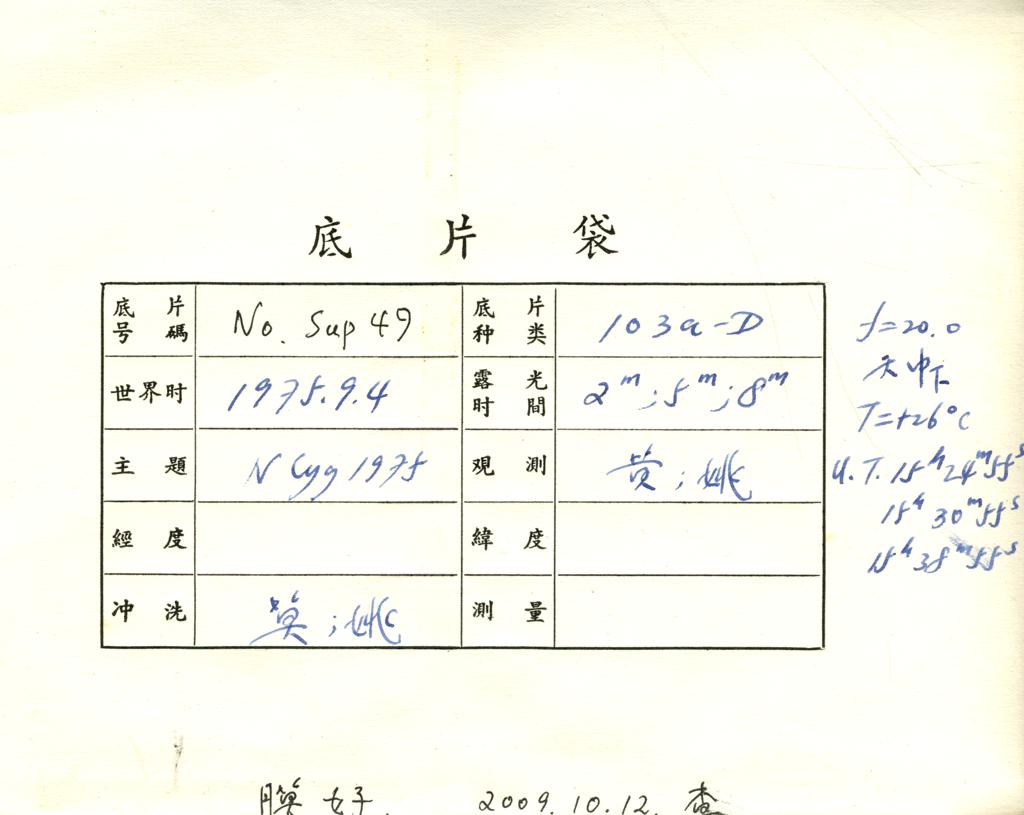 底片袋
底片号碼 No. Sup 49 底片种类 103a-D
世界时 1975.9.4 露光时間 2ᵐ; 5ᵐ; 8ᵐ
主題 N Cyg 1975 观測 黄; 姚
經度 緯度
冲洗 黄; 姚 測量
f=20.0
天中下
T=+26°C
U.T. 15ʰ24ᵐ55ˢ
15ʰ30ᵐ55ˢ
15ʰ38ᵐ55ˢ
好. 2009.10.12. 查